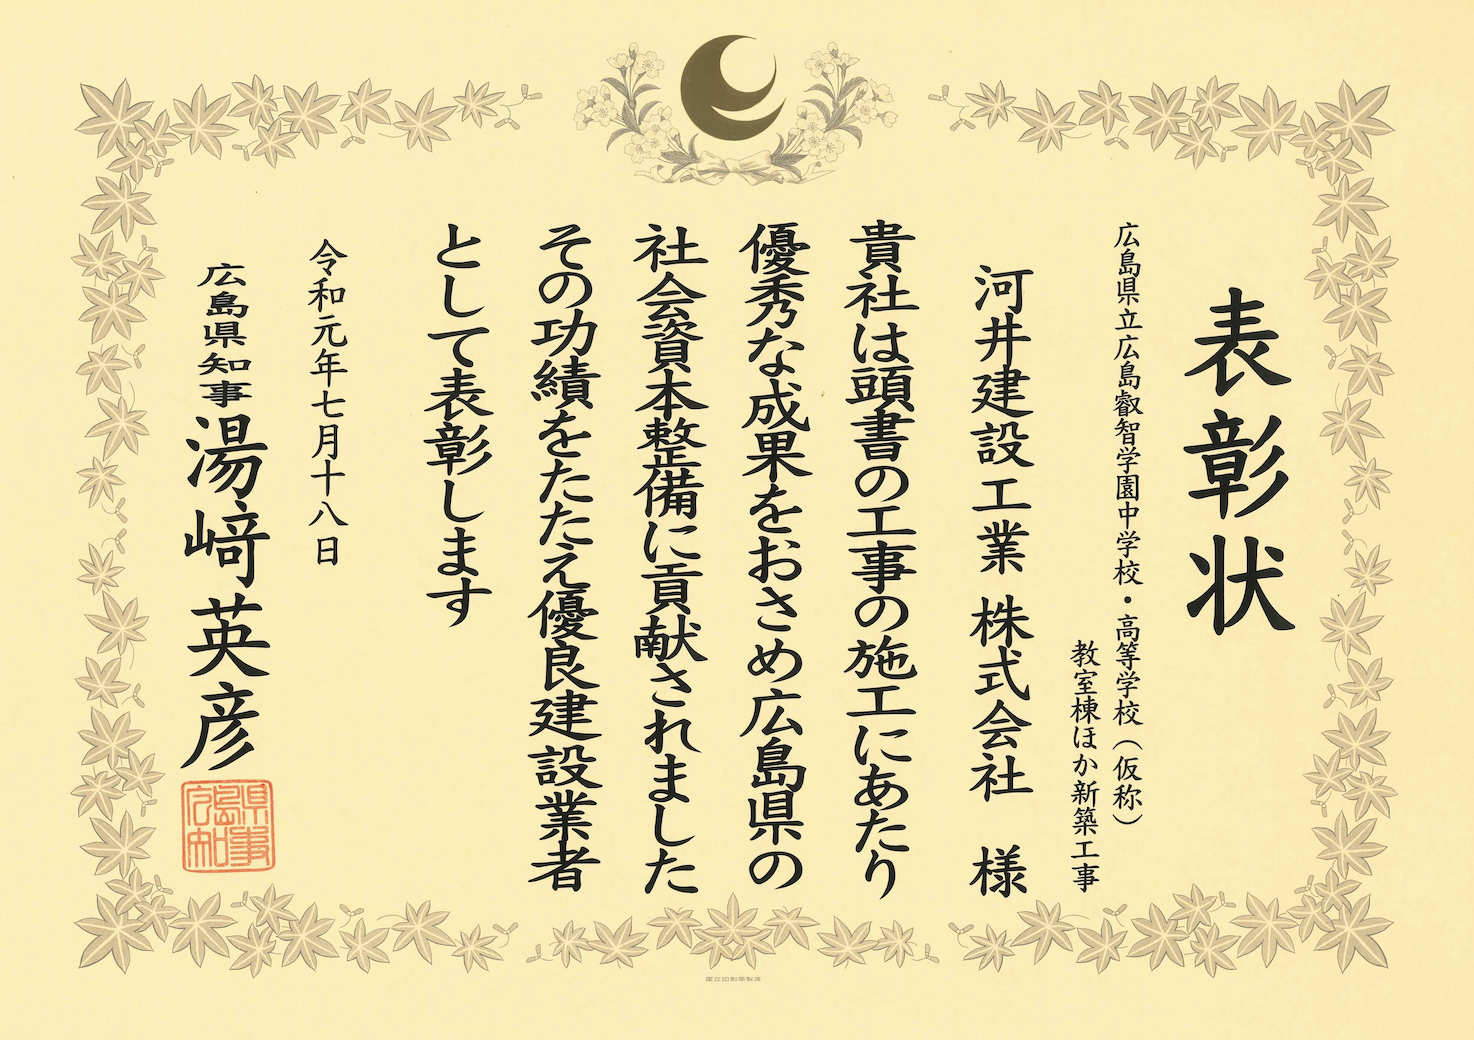 表彰状
広島県立広島叡智学園中学校・高等学校（仮称）
教室棟ほか新築工事
河井建設工業 株式会社 様
貴社は頭書の工事の施工にあたり
優秀な成果をおさめ広島県の
社会資本整備に貢献されました
その功績をたたえ優良建設業者
として表彰します
令和元年七月十八日
広島県知事 湯﨑英彦
広島県知事
国立印刷局製造